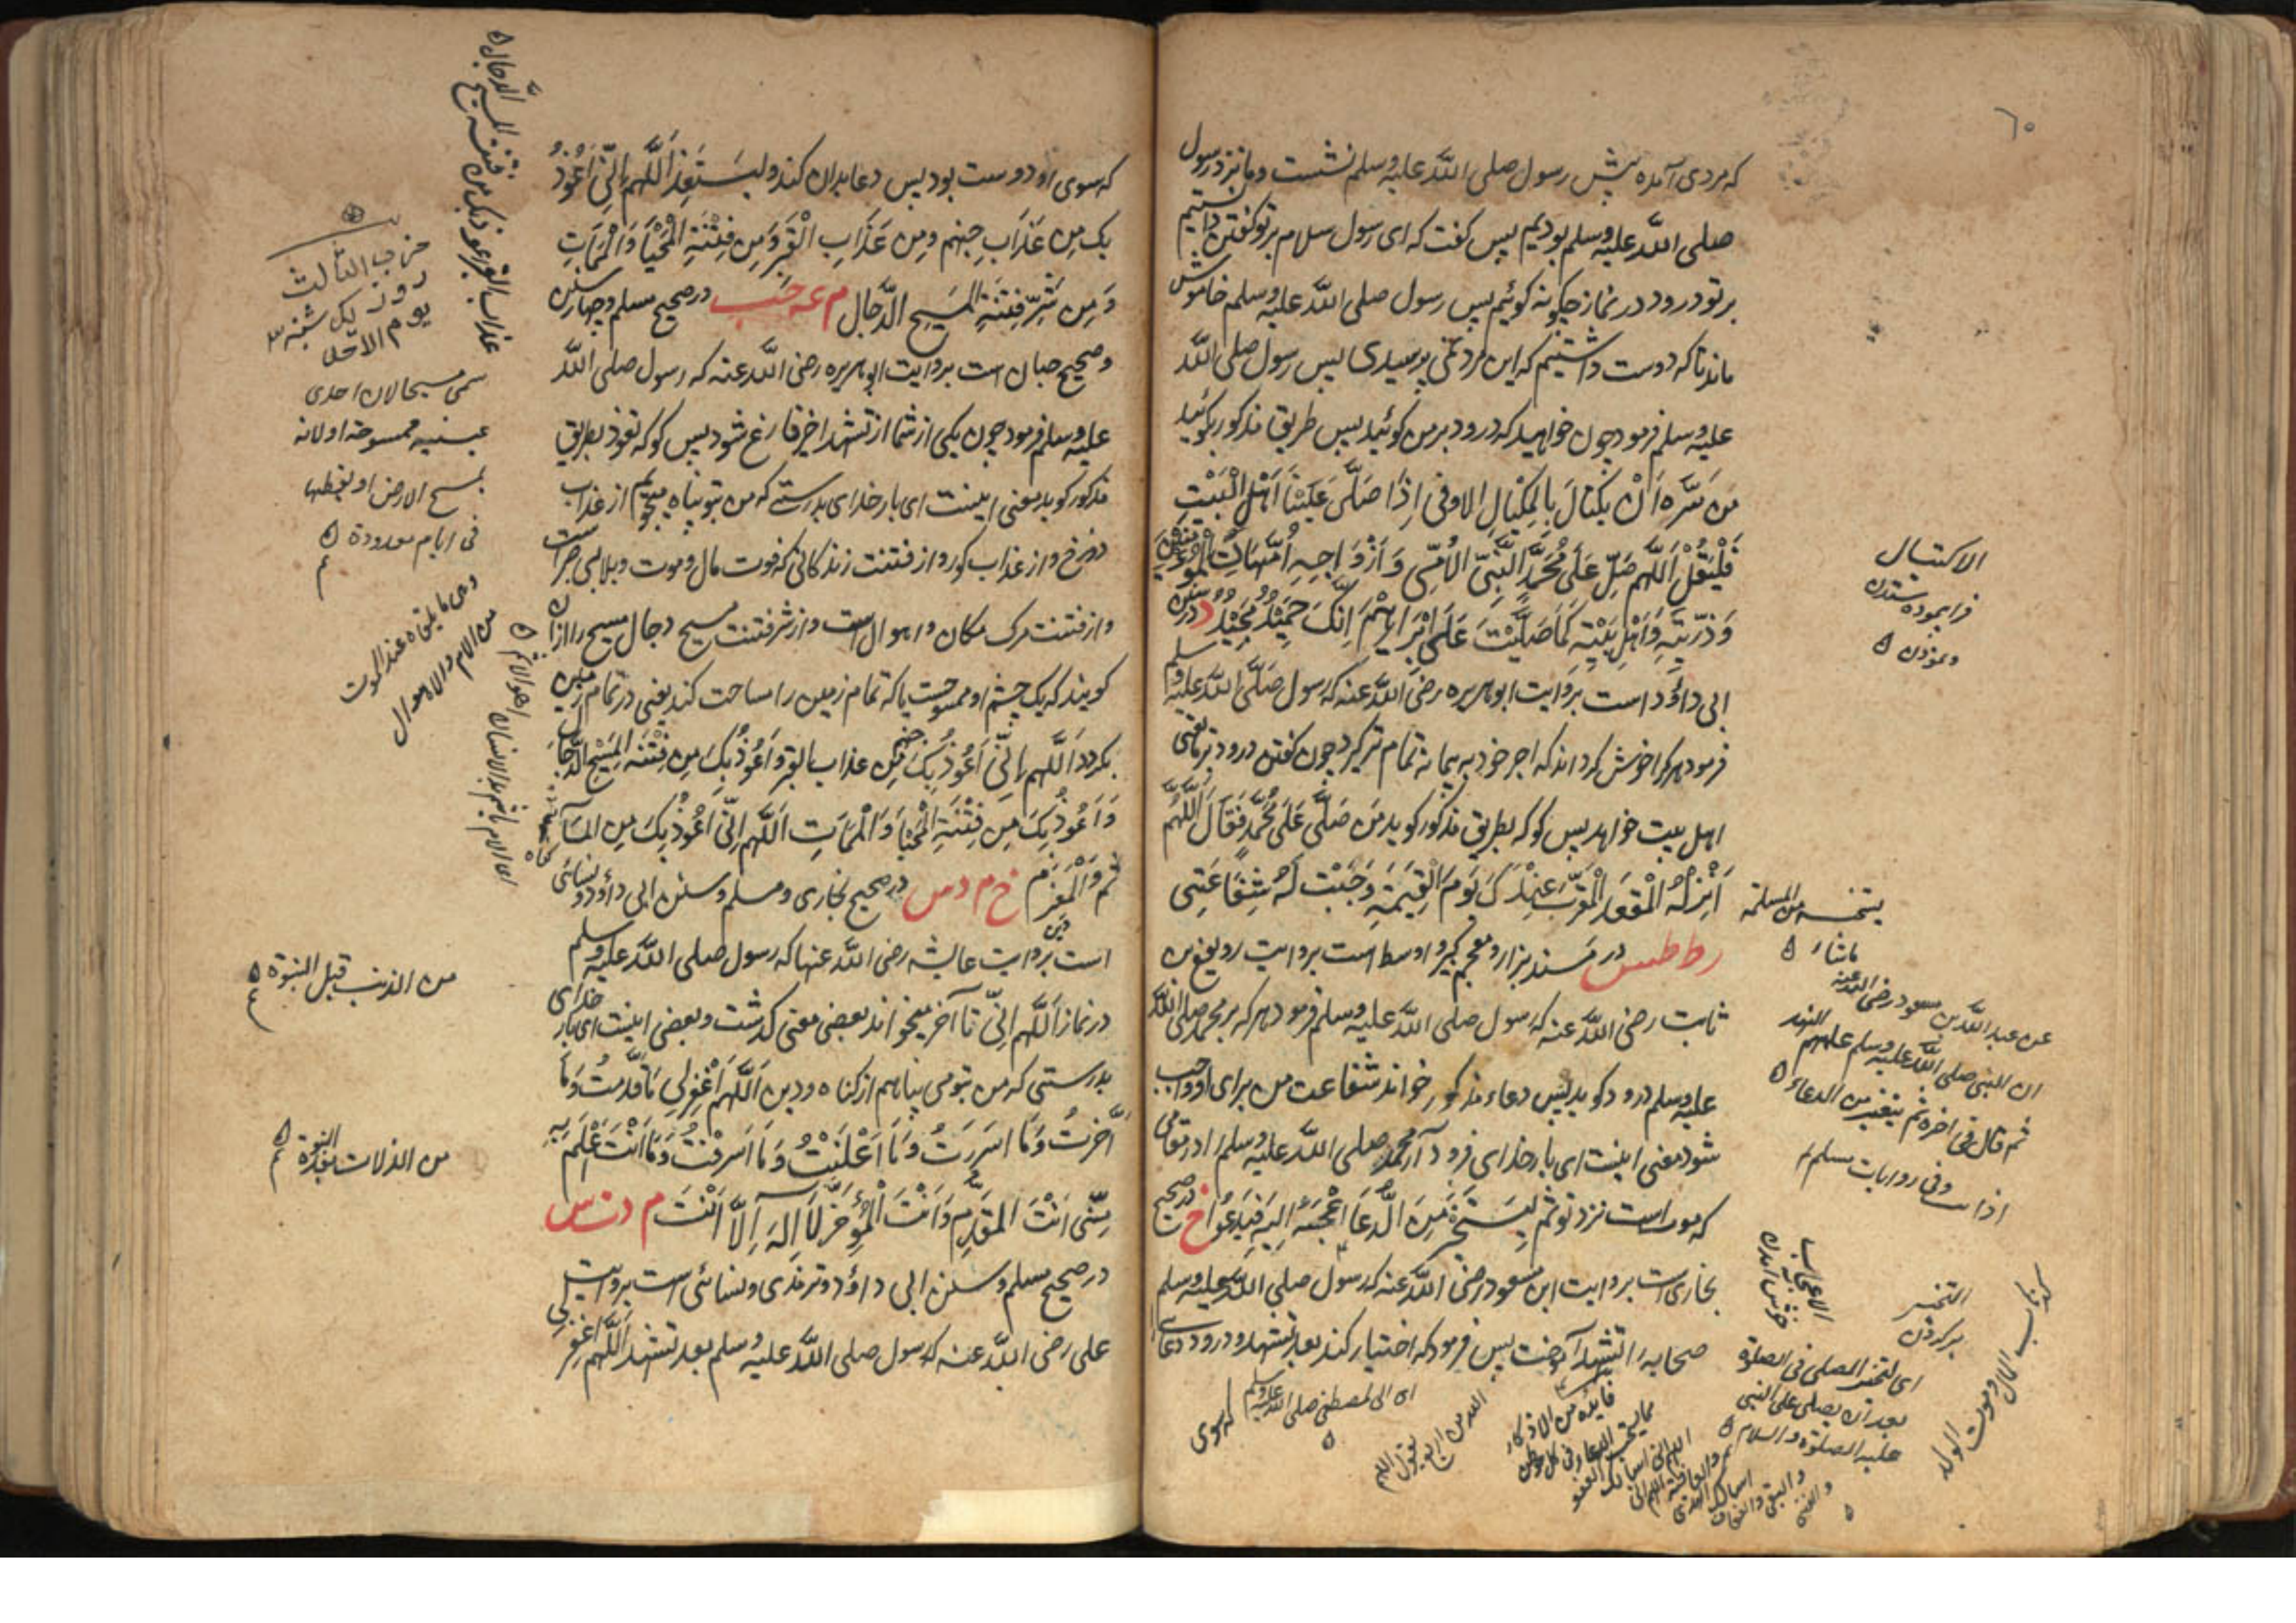 ٦٠
که مردی آمده پیش رسول صلی الله علیه وسلم نشست ومایان نزد رسول
صلی الله علیه وسلم بودیم پس گفت که ای رسول سلام بر تو گفتن دانستیم
بر تو درود در نماز چگونه گوئیم پس رسول صلی الله علیه وسلم خاموش
ماند تا که دوست داشتیم که این مرد نمی پرسیدی پس رسول صلی الله
علیه وسلم فرمود چون خواهید که درود بر من گوئید پس طریق مذکور بگوئید
مَن سَرَّه اَنْ یَکْتالَ بِالْمِکْیالِ الاوفی اِذَا صَلَّی عَلَیْنَا اَهْلَ الْبَیْتِ
فَلْیَقُلْ اَللّٰهُمَّ صَلِّ عَلَی مُحَمَّدٍ النَّبِیِّ الْاُمِّیِّ وَاَزْوَاجِهِ اُمَّهَاتِ الْمُؤمِنِیْنَ
وَذُرِّیَّتِهِ وَاَهْلِ بَیْتِهِ کَمَا صَلَّیْتَ عَلَی اِبْرَاهِیْمَ اِنَّکَ حَمِیْدٌ مَجِیْدٌ د در سنن
ابی داؤد است بروایت ابوهریره رضی الله عنه که رسول صلی الله علیه وسلم
فرمود هر کرا خوش گرداند که اجر خود به پیمانه تمام تر گیرد چون گفتن درود بر ما یعنی
اهل بیت خواهد پس گو که بطریق مذکور گوید مَن صَلَّی عَلَی مُحَمَّدٍ فَقَالَ اَللّٰهُمَّ
اَنْزِلْهُ الْمَقْعَدَ الْمُقَرَّبَ عِنْدَکَ یَومَ الْقِیٰمَةِ وَجَبَتْ لَهُ شَفَاعَتِی
ر ط طس در مسند بزار و معجم کبیر و اوسط است بروایت رویفع بن
ثابت رضی الله عنه که رسول صلی الله علیه وسلم فرمود هر که بر محمد صلی الله
علیه وسلم درود گوید پس دعاء مذکور خواند شفاعت من برای او واجب
شود معنی اینست ای بار خدای فرود آر محمد صلی الله علیه وسلم را در مقامی
که موت است نزد تو ثم لیتخیر مِنَ الدُّعَا اَعْجَبَهُ اِلَیهِ فَیَدْعُوا خ در صحیح
بخاری است بروایت ابن مسعود رضی الله عنه که رسول صلی الله علیه وسلم
صحابه را تشهد آموخت پس فرمود که اختیار کند بعد تشهد و درود دعای
که سوی
الاکتیال
فرا پیموده ستدن
ماشاء
عن عبد الله بن مسعود رضی الله عنه
ان النبی صلی الله علیه وسلم علمهم التشهد
ثم قال فی اخره ثم یتخیر من الدعاء
وفی روایات مسلم
الاعجاب
خوش آمدن
التخیر
برگزیدن
ای لیتخیر المصلی فی الصلوة
بعد ان یصلی علی النبی
علیه الصلوة والسلام
ای الی المصطفی صلی الله علیه وسلم
که سوی او دوست بود پس دعا بدان کند ولیَستَعِذ اَللّٰهُمَّ اِنِّی اَعُوْذُ
بِکَ مِن عَذَابِ جهنم ومِن عَذَابِ الْقَبْرِ وَمِن فِتْنَةِ الْمَحْیَا وَالْمَمَاتِ
وَمِن شَرِّ فِتْنَةِ الْمَسِیحِ الدَّجَّالِ م عه حب در صحیح مسلم و چهار سنن
و صحیح حبان است بروایت ابوهریره رضی الله عنه که رسول صلی الله
علیه وسلم فرمود چون یکی از شما از تشهد اخیر فارغ شود پس گو که تعوذ بطریق
مذکور گوید معنی اینست ای بار خدای بدرستی که من بتو پناه میجویم از عذاب
دوزخ و از عذاب گور و از فتنت زندگانی که فوت مال و موت و بلای جز است
و از فتنت مرگ مکان و اهوال است و از شر فتنت مسیح دجال مسیح را ازان
گویند که یک چشم او ممسوحست یا که تمام زمین را مساحت کند یعنی در تمام زمین
بگردد اَللّٰهُمَّ اِنِّی اَعُوْذُ بِکَ مِن عذاب القبر وَاَعُوْذُ بِکَ مِن فِتْنَةِ الْمَسِیْحِ الدَّجَالِ
وَاَعُوذُ بِکَ مِن فِتْنَةِ الْمَحْیَا وَالْمَمَاتِ اَللّٰهُمَّ اِنِّی اَعُوْذُ بِکَ مِن المَاْ
ثم وَالْمَغْرَم خ م د س در صحیح بخاری و مسلم و سنن ابی داؤد و نسائی
است بروایت عایشه رضی الله عنها که رسول صلی الله علیه وسلم
در نماز اَللّٰهُمَّ اِنِّی تا آخر میخواند بعضی معنی گذشت و بعضی اینست ای بار خدای
بدرستی که من بتو می پناهم از گناه و دین اَللّٰهُمَّ اغْفِرْلِی مَا قَدَّمْتُ وَمَا
اَخَّرْتُ وَمَا اَسرَرتُ وَمَا اَعْلَنْتُ وَمَا اَسْرَفْتُ وَمَا اَنْتَ اَعْلَمُ بِهِ
مِنِّی اَنْتَ المُقَدِّمُ وَاَنْتَ الْمُؤَخِّرُ لَا اِلٰهَ اِلَّا اَنْتَ م د ت س
در صحیح مسلم و سنن ابی داؤد و ترمذی و نسائی است بروایت
علی رضی الله عنه که رسول صلی الله علیه وسلم بعد تشهد اَللّٰهُمَّ اغْفِرْلِی
حزب الثالث
روز یک شنبه
یوم الاحد
سمی مسیحا لان احدی
عینیه ممسوحة او لانه
یمسح الارض او یقطعها
فی ایام معدودة
من الذنب قبل النبوة
من الذلات بعد النبوة